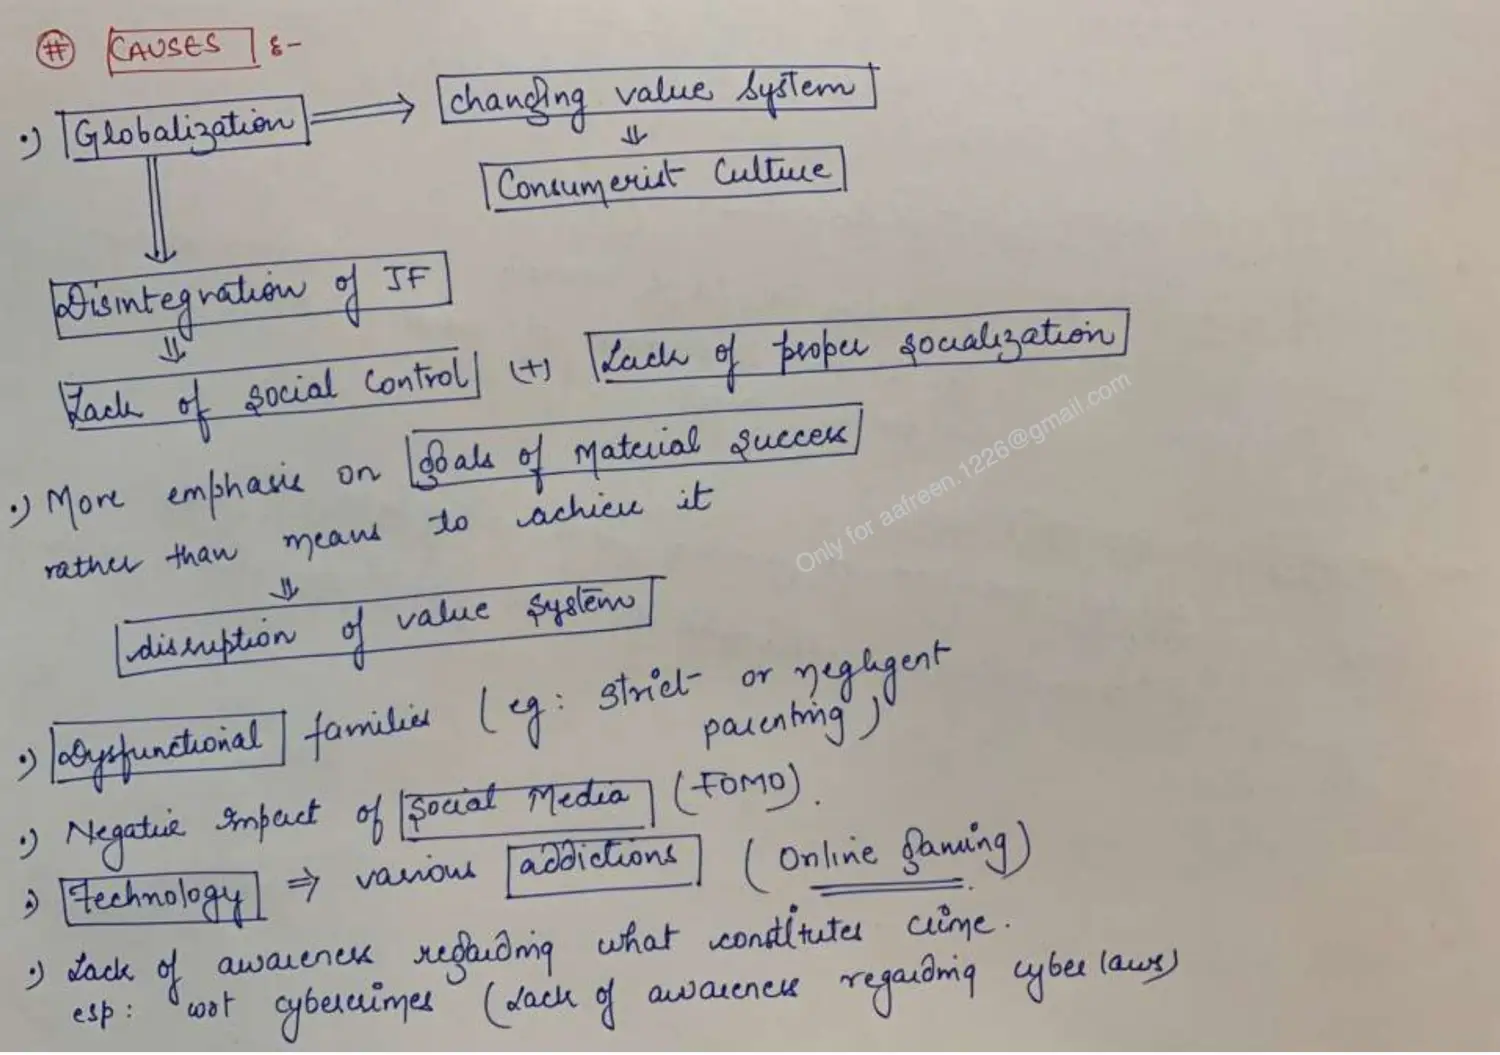 # CAUSES :-
•) Globalization ⇒ changing value system
⇓
Consumerist Culture
Disintegration of JF
⇓
Lack of social control (+) Lack of proper socialization
•) More emphasis on goals of material success
rather than means to achieve it
⇓
disruption of value system
•) Dysfunctional families (eg: strict or negligent
parenting)
•) Negative impact of social Media (FOMO).
•) Technology ⇒ various addictions (Online gaming)
•) Lack of awareness regarding what constitutes crime.
esp: wrt cybercrimes (Lack of awareness regarding cyber laws)
Only for aafreen.1226@gmail.com